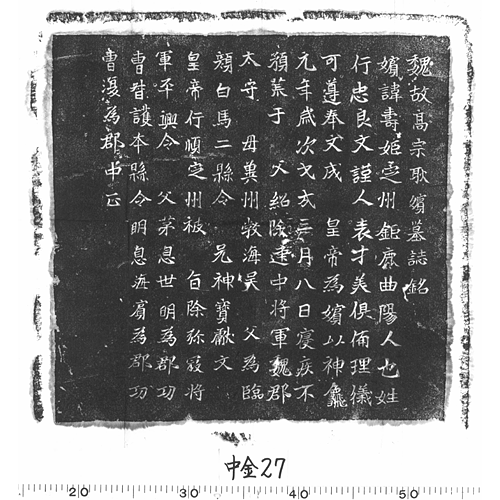 魏故高宗耿嬪墓誌銘
嬪諱壽姬定州鉅鹿曲陽人也姓
行忠良文謹人表才美俱備理儀
可遵奉文成 皇帝為嬪以神龜
元年歲次戊戌三月八日寢疾不
豫薨于 父紹除遼中將軍魏郡
太守 母冀州牧海吳 父為臨
潁白馬二縣令 兄神寶獻文
皇帝行順定州被 旨除弥寇將
軍平興令 父弟息世明為郡功
曹督護本縣令明息海賓為郡功
曹復為郡中正
中金27
20 30 40 50